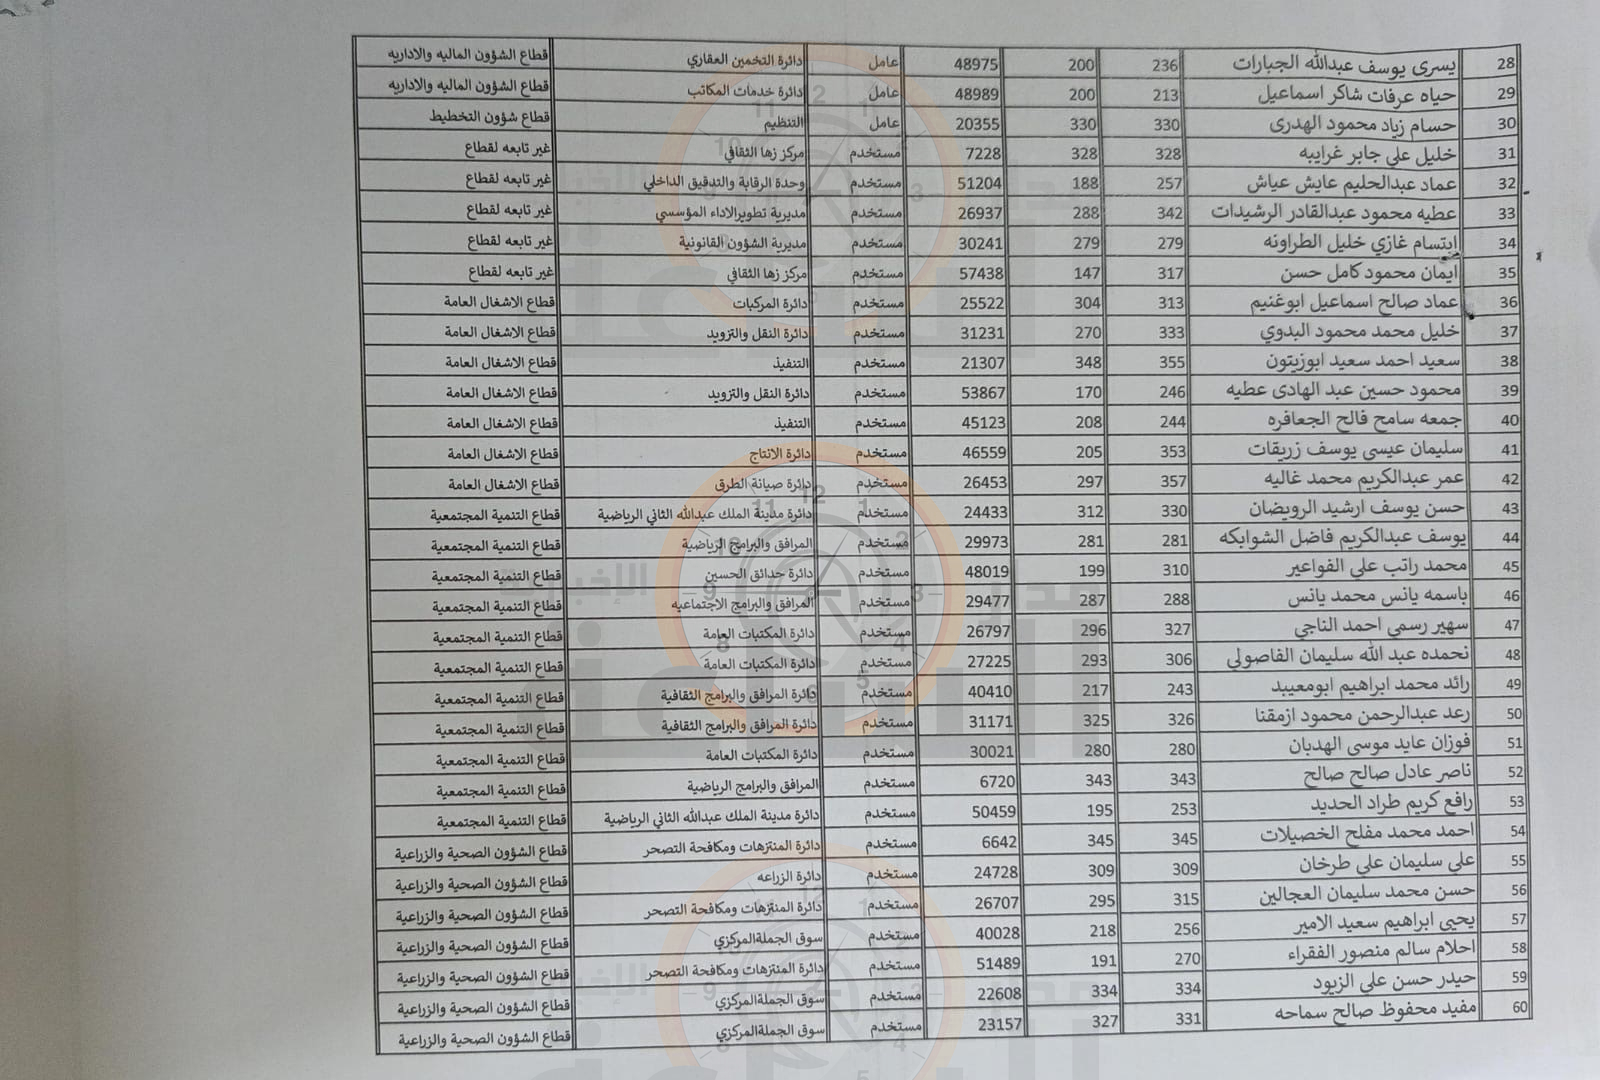 28 يسرى يوسف عبدالله الجبارات 236 200 48975 عامل دائرة التخمين العقاري قطاع الشؤون الماليه والاداريه
29 حياه عرفات شاكر اسماعيل 213 200 48989 عامل دائرة خدمات المكاتب قطاع الشؤون الماليه والاداريه
30 حسام زياد محمود الهدرى 330 330 20355 عامل التنظيم قطاع شؤون التخطيط
31 خليل علي جابر غرايبه 328 328 7228 مستخدم مركز زها الثقافي غير تابعه لقطاع
32 عماد عبدالحليم عايش عياش 257 188 51204 مستخدم وحدة الرقابة والتدقيق الداخلي غير تابعه لقطاع
33 عطيه محمود عبدالقادر الرشيدات 342 288 26937 مستخدم مديرية تطويرالاداء المؤسسي غير تابعه لقطاع
34 ابتسام غازي خليل الطراونه 279 279 30241 مستخدم مديرية الشؤون القانونية غير تابعه لقطاع
35 ايمان محمود كامل حسن 317 147 57438 مستخدم مركز زها الثقافي غير تابعه لقطاع
36 عماد صالح اسماعيل ابوغنيم 313 304 25522 مستخدم دائرة المركبات قطاع الاشغال العامة
37 خليل محمد محمود البدوي 333 270 31231 مستخدم دائرة النقل والتزويد قطاع الاشغال العامة
38 سعيد احمد سعيد ابوزيتون 355 348 21307 مستخدم التنفيذ قطاع الاشغال العامة
39 محمود حسين عبد الهادى عطيه 246 170 53867 مستخدم دائرة النقل والتزويد قطاع الاشغال العامة
40 جمعه سامح فالح الجعافره 244 208 45123 مستخدم التنفيذ قطاع الاشغال العامة
41 سليمان عيسى يوسف زريقات 353 205 46559 مستخدم دائرة الانتاج قطاع الاشغال العامة
42 عمر عبدالكريم محمد غاليه 357 297 26453 مستخدم دائرة صيانة الطرق قطاع الاشغال العامة
43 حسن يوسف ارشيد الرويضان 330 312 24433 مستخدم دائرة مدينة الملك عبدالله الثاني الرياضية قطاع التنمية المجتمعية
44 يوسف عبدالكريم فاضل الشوابكه 281 281 29973 مستخدم المرافق والبرامج الرياضية قطاع التنمية المجتمعية
45 محمد راتب علي الفواعير 310 199 48019 مستخدم دائرة حدائق الحسين قطاع التنمية المجتمعية
46 باسمه يانس محمد يانس 288 287 29477 مستخدم المرافق والبرامج الاجتماعيه قطاع التنمية المجتمعية
47 سهير رسمي احمد الناجي 327 296 26797 مستخدم دائرة المكتبات العامة قطاع التنمية المجتمعية
48 نحمده عبد الله سليمان الفاصولي 306 293 27225 مستخدم دائرة المكتبات العامة قطاع التنمية المجتمعية
49 رائد محمد ابراهيم ابومعيبد 243 217 40410 مستخدم دائرة المرافق والبرامج الثقافية قطاع التنمية المجتمعية
50 رعد عبدالرحمن محمود ازمقنا 326 325 31171 مستخدم دائرة المرافق والبرامج الثقافية قطاع التنمية المجتمعية
51 فوزان عايد موسى الهدبان 280 280 30021 مستخدم دائرة المكتبات العامة قطاع التنمية المجتمعية
52 ناصر عادل صالح صالح 343 343 6720 مستخدم المرافق والبرامج الرياضية قطاع التنمية المجتمعية
53 رافع كريم طراد الحديد 253 195 50459 مستخدم دائرة مدينة الملك عبدالله الثاني الرياضية قطاع التنمية المجتمعية
54 احمد محمد مفلح الخصيلات 345 345 6642 مستخدم دائرة المنتزهات ومكافحة التصحر قطاع الشؤون الصحية والزراعية
55 علي سليمان علي طرخان 309 309 24728 مستخدم دائرة الزراعه قطاع الشؤون الصحية والزراعية
56 حسن محمد سليمان العجالين 315 295 26707 مستخدم دائرة المنتزهات ومكافحة التصحر قطاع الشؤون الصحية والزراعية
57 يحيى ابراهيم سعيد الامير 256 218 40028 مستخدم سوق الجملةالمركزي قطاع الشؤون الصحية والزراعية
58 احلام سالم منصور الفقراء 270 191 51489 مستخدم دائرة المنتزهات ومكافحة التصحر قطاع الشؤون الصحية والزراعية
59 حيدر حسن علي الزيود 334 334 22608 مستخدم سوق الجملةالمركزي قطاع الشؤون الصحية والزراعية
60 مفيد محفوظ صالح سماحه 331 327 23157 مستخدم سوق الجملةالمركزي قطاع الشؤون الصحية والزراعية